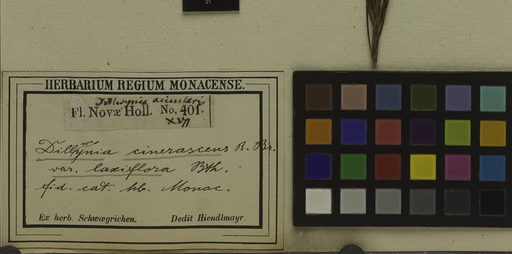 HERBARIUM REGIUM MONACENSE.
Fl. Novæ Holl. No. 401.
Dillwynia cinerascens R. Br.
var. laxiflora Bth.
fid. cat. hb. Monac.
Ex herb. Schwægrichen. Dedit Hiendlmayr.